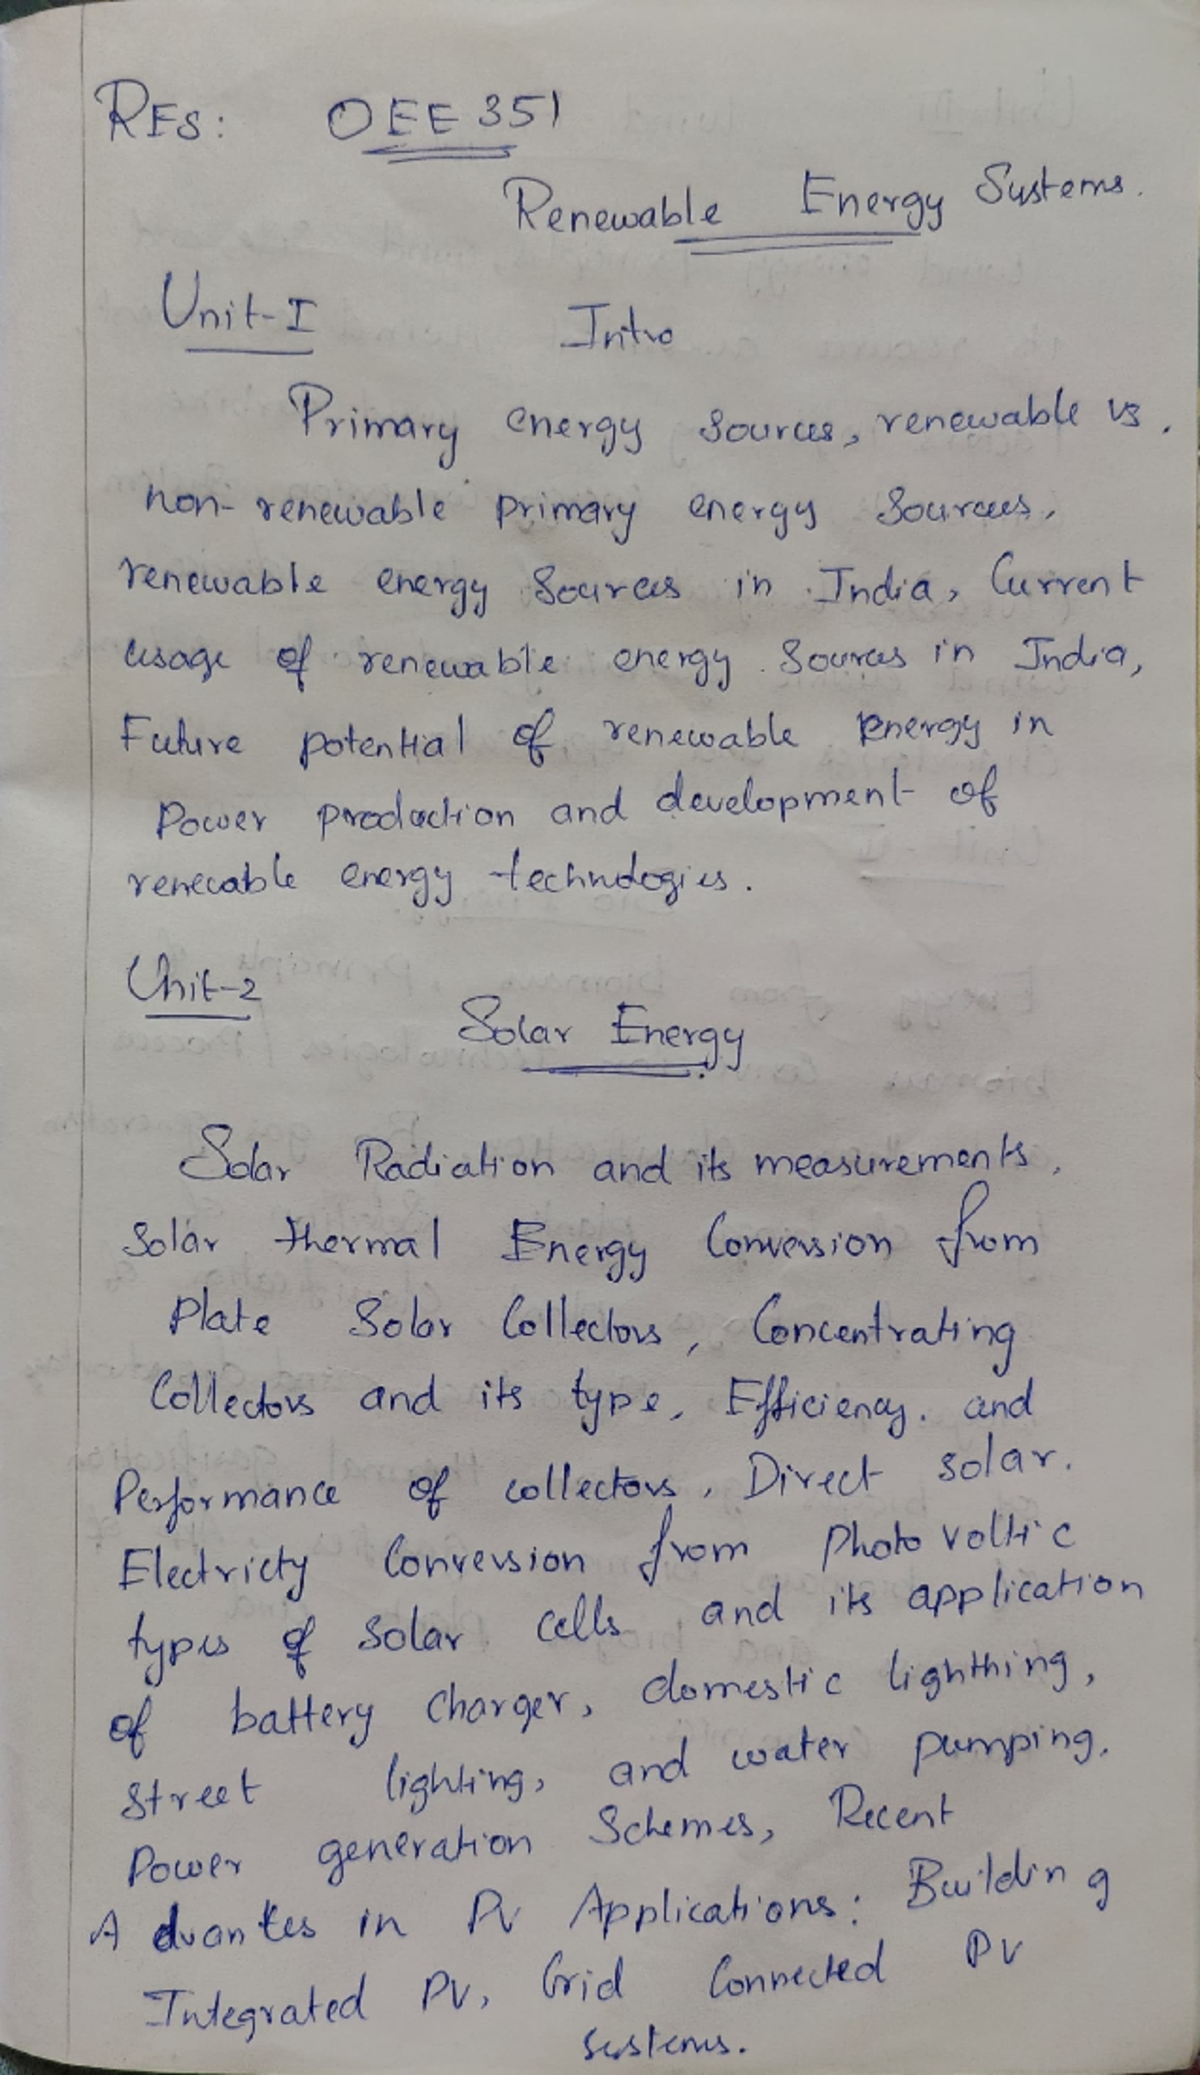 RES: OEE 351
Renewable Energy Systems.
Unit-I Intro
Primary energy sources, renewable vs.
non-renewable primary energy sources,
renewable energy sources in India, Current
usage of renewable energy sources in India,
Future potential of renewable Energy in
Power production and development of
renewable energy technologies.
Unit-2
Solar Energy
Solar Radiation and its measurements,
Solar thermal Energy Conversion from
Plate Solar Collectors, Concentrating
Collectors and its type, Efficiency. and
Performance of collectors, Direct solar.
Electricty Conversion from Photo voltic
types of solar cells and its application
of battery charger, domestic lighthing,
street lighting, and water pumping,
Power generation Schemes, Recent
Advantes in PV Applications: Building
Integrated PV, Grid Connected PV
systems.